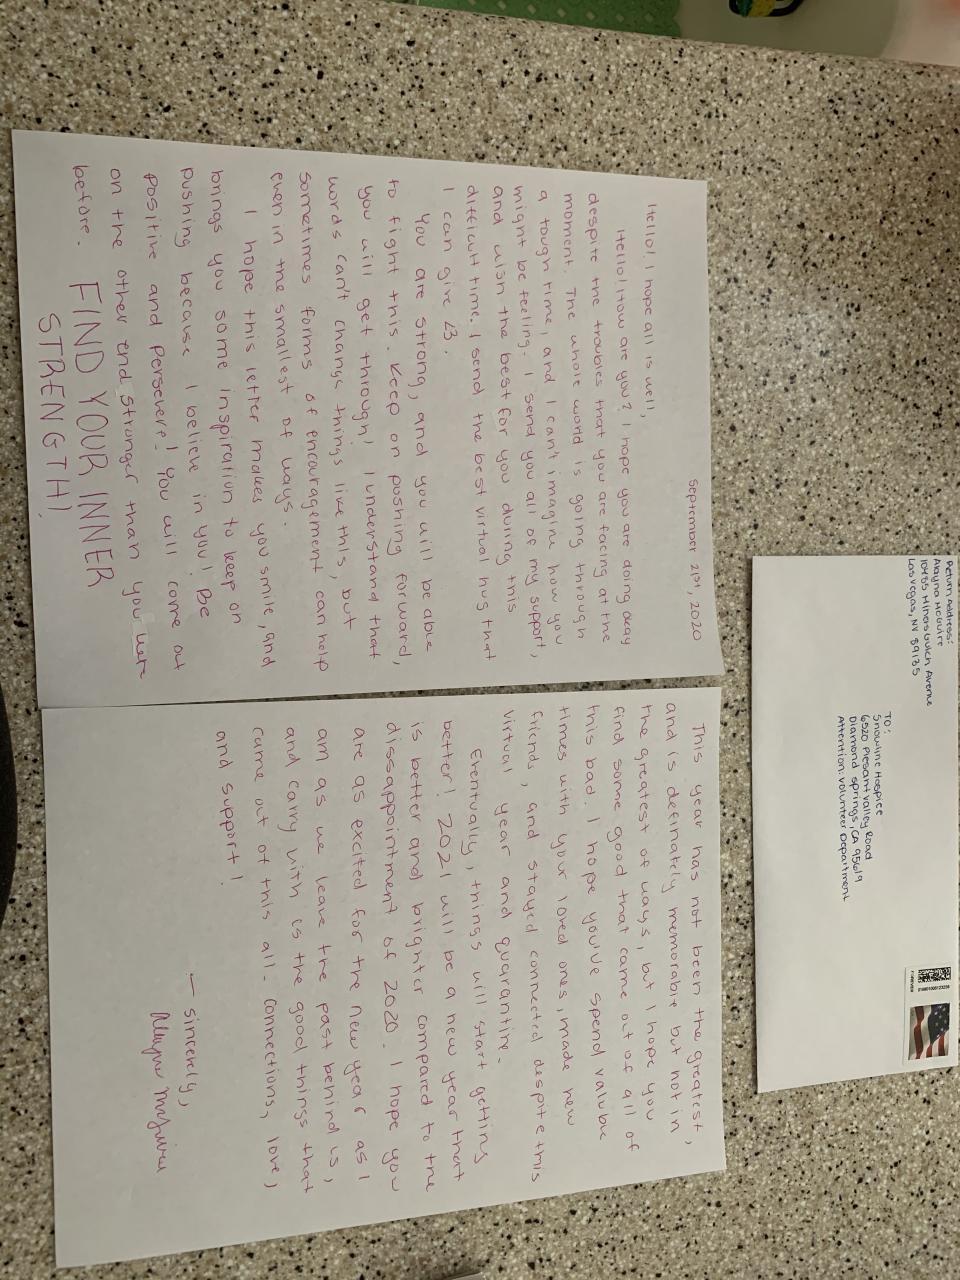 September 21st, 2020
Hello! I hope all is well,
Hello! How are you? I hope you are doing okay
despite the troubles that you are facing at the
moment. The whole world is going through
a tough time, and I can't imagine how you
might be feeling. I send you all of my support,
and wish the best for you during this
difficult time. I send the best virtual hug that
I can give <3.
You are strong, and you will be able
to fight this. Keep on pushing forward,
you will get through! I understand that
words can't change things like this, but
sometimes forms of encouragement can help
even in the smallest of ways.
I hope this letter makes you smile, and
brings you some inspiration to keep on
pushing because I believe in you! Be
positive and persevere! You will come out
on the other end stronger than you were
before. FIND YOUR INNER
STRENGTH!
This year has not been the greatest,
and is definately memorable but not in
the greatest of ways, but I hope you
find some good that came out of all of
this bad. I hope you've spend valuble
times with your loved ones, made new
friends, and stayed connected despite this
virtual year and quarantine.
Eventually, things will start getting
better! 2021 will be a new year that
is better and brighter compared to the
dissappointment of 2020. I hope you
are as excited for the new year as I
am as we leave the past behind is,
and carry with is the good things that
came out of this all. Connections, love,
and support!
— sincerely,
Return Address:
Alayna McGuire
10455 Miners Gulch Avenue
Las Vegas, NV 89135
TO:
Snowline Hospice
6520 Plesant valley Road
Diamond springs, CA 95619
Attention: Volunteer Department